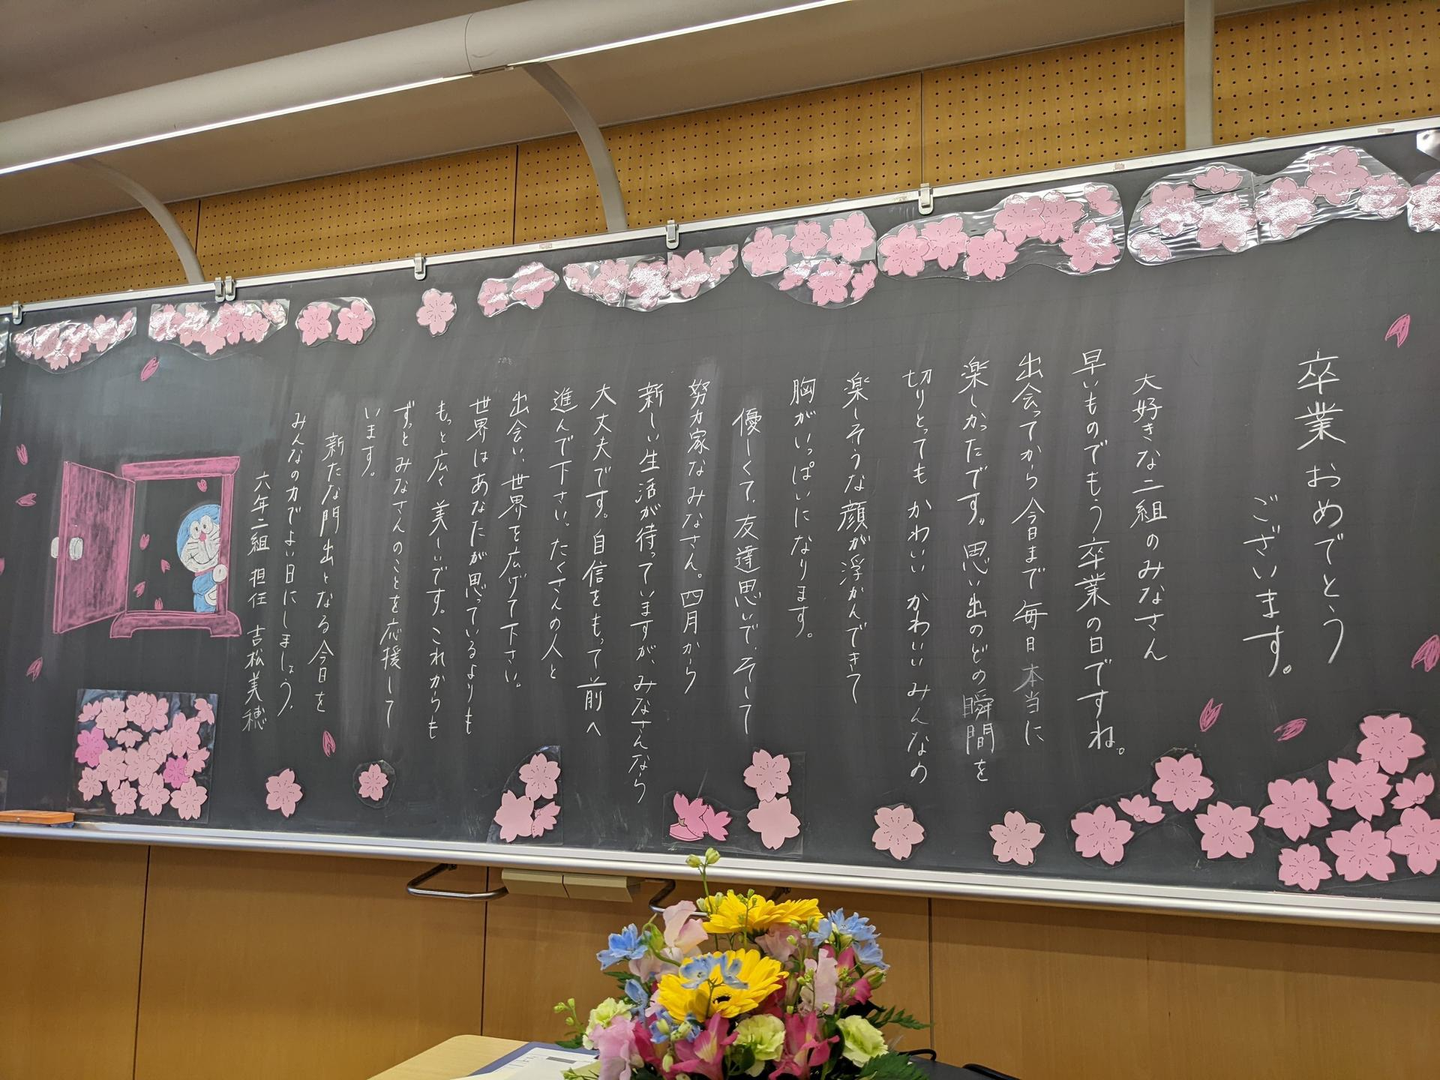 卒業おめでとう
ございます。
大好きな二組のみなさん
早いものでもう卒業の日ですね。
出会ってから今日まで毎日本当に
楽しかったです。思い出のどの瞬間を
切りとってもかわいいかわいいみんなの
楽しそうな顔が浮かんできて
胸がいっぱいになります。
優しくて、友達思いで、そして
努力家なみなさん。四月から
新しい生活が待っていますが、みなさんなら
大丈夫です。自信をもって前へ
進んで下さい。たくさんの人と
出会い、世界を広げて下さい。
世界はあなたが思っているよりも
もっと広く美しいです。これからも
ずっとみなさんのことを応援して
います。
新たな門出となる今日を
みんなの力でよい日にしましょう。
六年二組 担任 吉松美穂